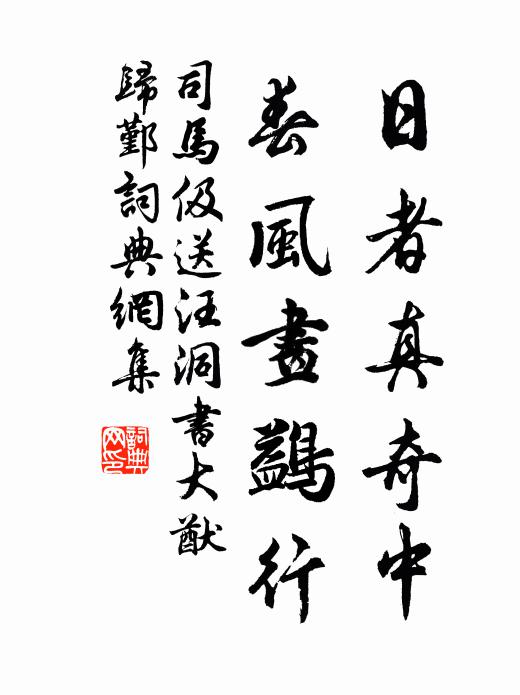 日者真奇中
春風畫鷁行
司馬伋送汪洞書大猷
歸鄞詞典網集
詞典网印